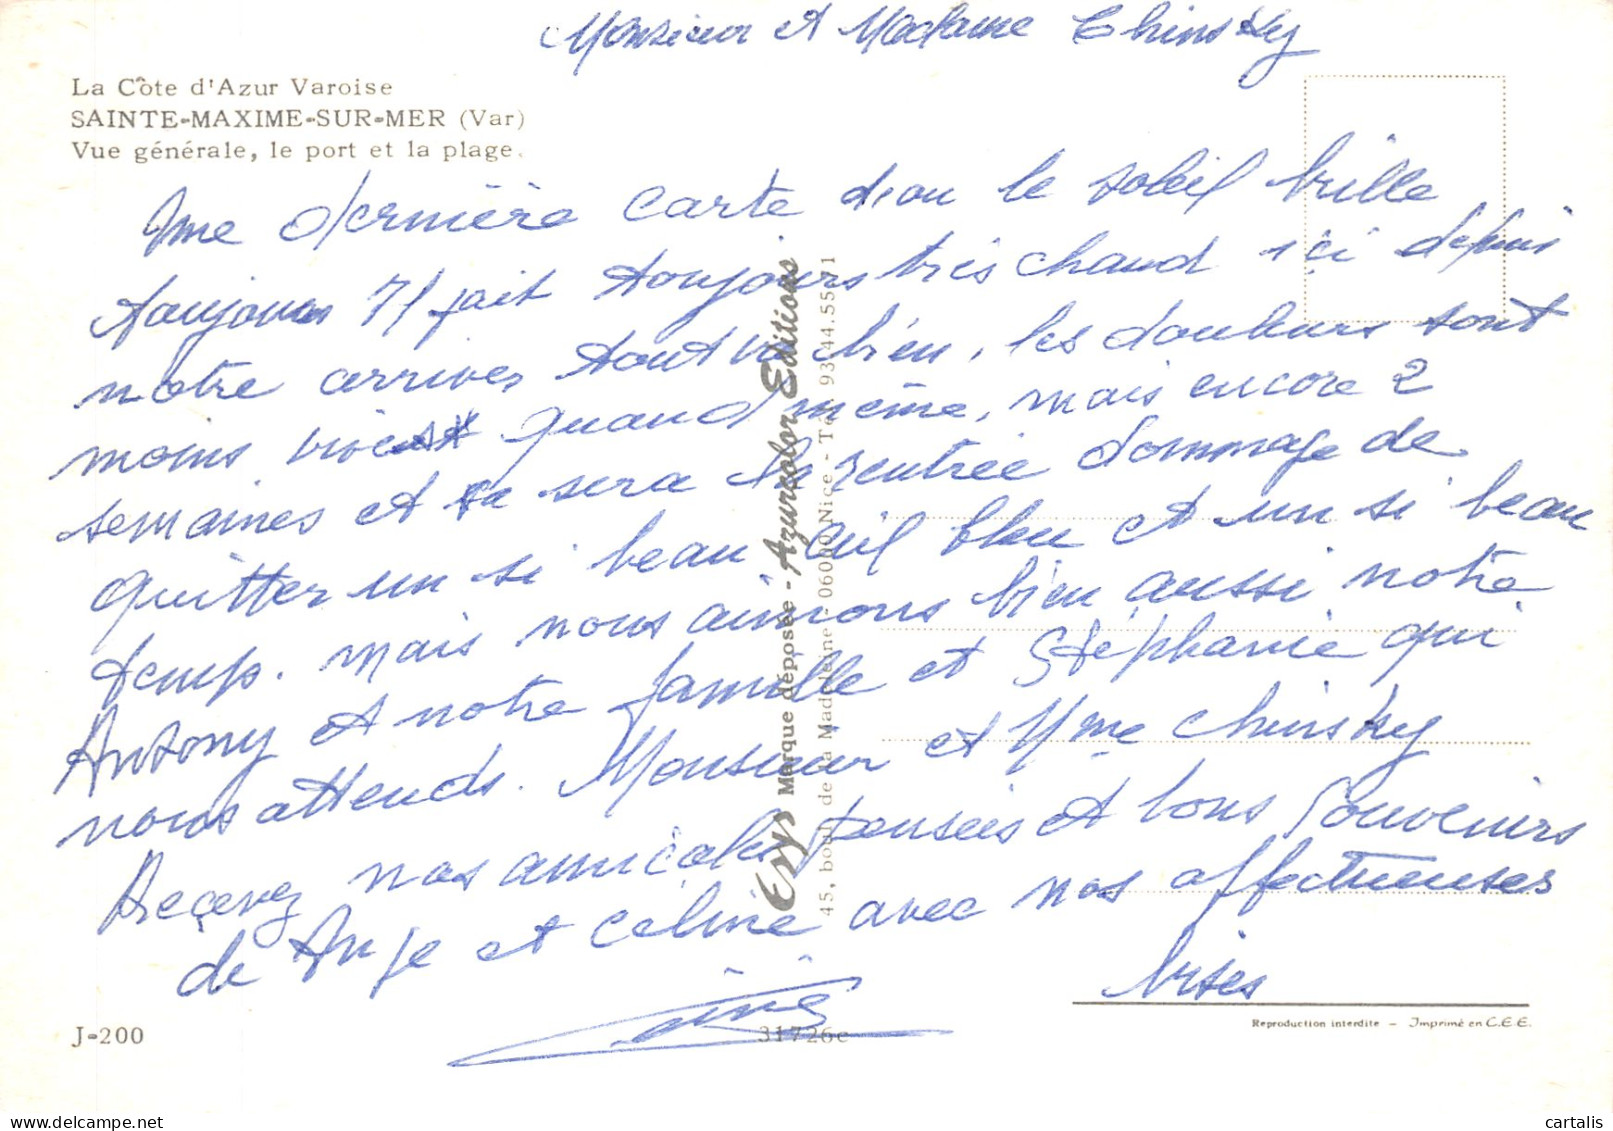 Monsieur et Madame Chinsky
La Côte d'Azur Varoise
SAINTE-MAXIME-SUR-MER (Var)
Vue générale, le port et la plage.
Une dernière carte d'ou le soleil brille
toujours Il fait toujours très chaud ici depuis
notre arrivée, tout va bien, les douleurs sont
moins vives quand même, mais encore 2
semaines et sa sera la rentrée dommage de
quitter un si beau ciel bleu et un si beau
temps. mais nous aimons bien aussi notre
Antony et notre famille et Stéphanie qui
nous attends. Monsieur et Mme Chinsky
Reçevez nos amicales pensées et bons souvenirs
de Ange et Celine avec nos affectueuses
bises
Edys Marque déposée - Azurcolor Editions
45, boul. de la Madeleine - 06000 Nice - Tél. 93.44.55.71
J-200
31726c
Reproduction interdite - Imprimé en C.E.E.
cartalis